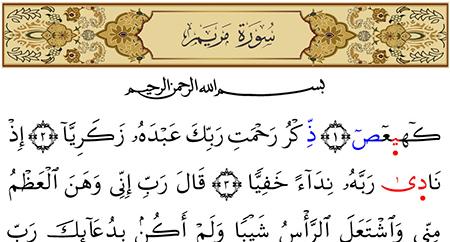 سُورَةُ مَرْيَمَ
بِسْمِ اللَّهِ الرَّحْمَٰنِ الرَّحِيمِ
كٓهيعٓصٓ ﴿١﴾ ذِّكْرُ رَحْمَتِ رَبِّكَ عَبْدَهُۥ زَكَرِيَّآ ﴿٢﴾ إِذْ
نَادَىٰ رَبَّهُۥ نِدَآءً خَفِيًّا ﴿٣﴾ قَالَ رَبِّ إِنِّى وَهَنَ ٱلْعَظْمُ
مِنِّى وَٱشْتَعَلَ ٱلرَّأْسُ شَيْبًا وَلَمْ أَكُنۢ بِدُعَآئِكَ رَبِّ